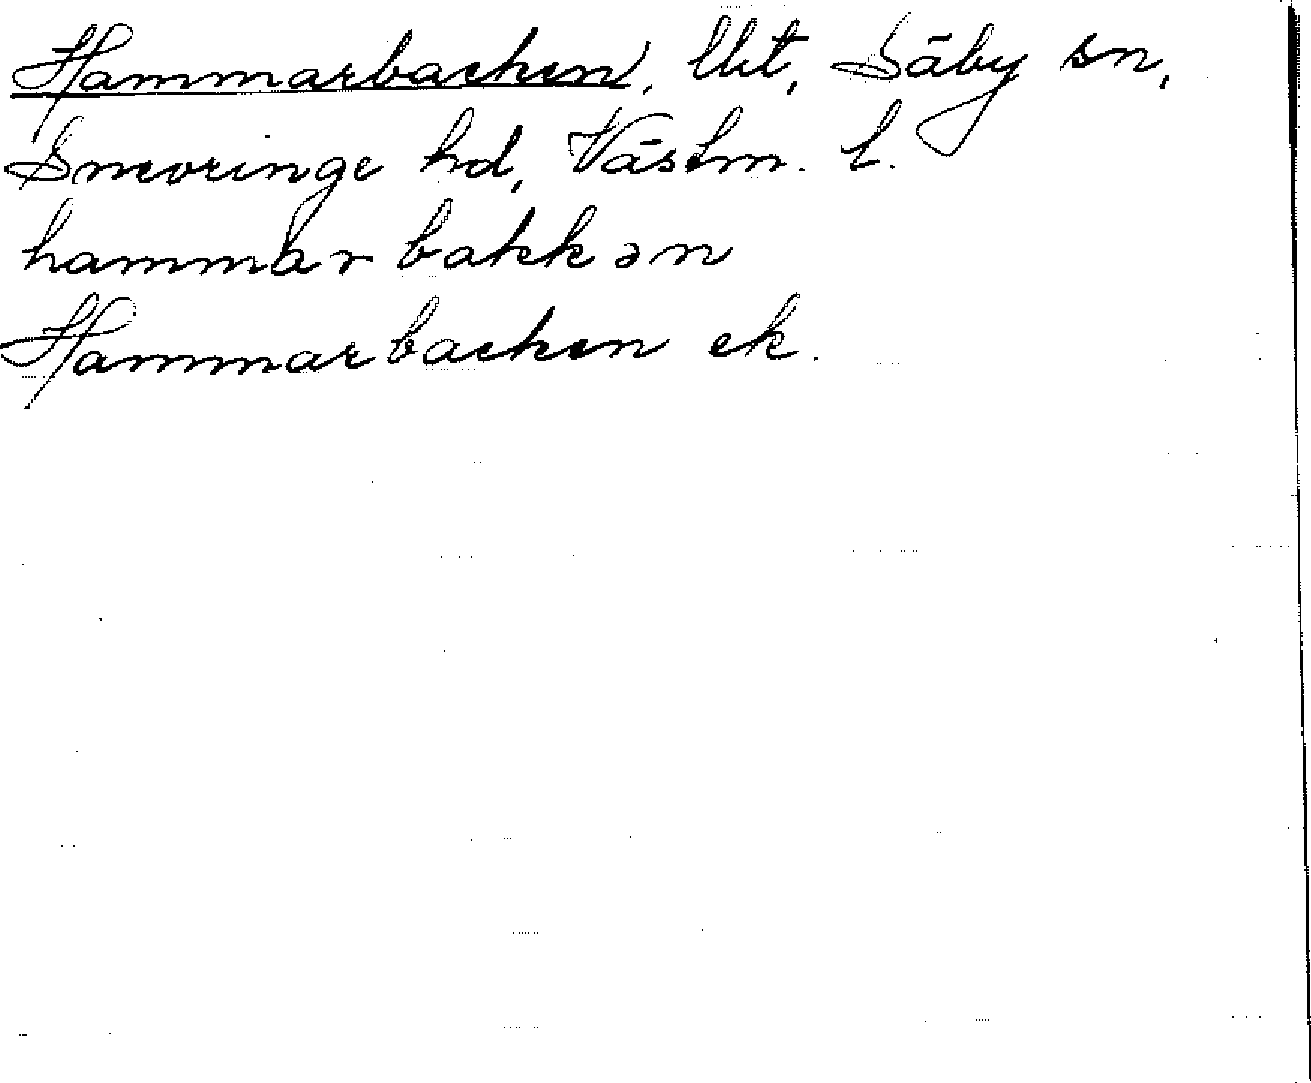 Hammarbacken, lht, Säby sn,
Snevringe hd, Västm. l.
hammar bakkən
Hammarbacken ek.